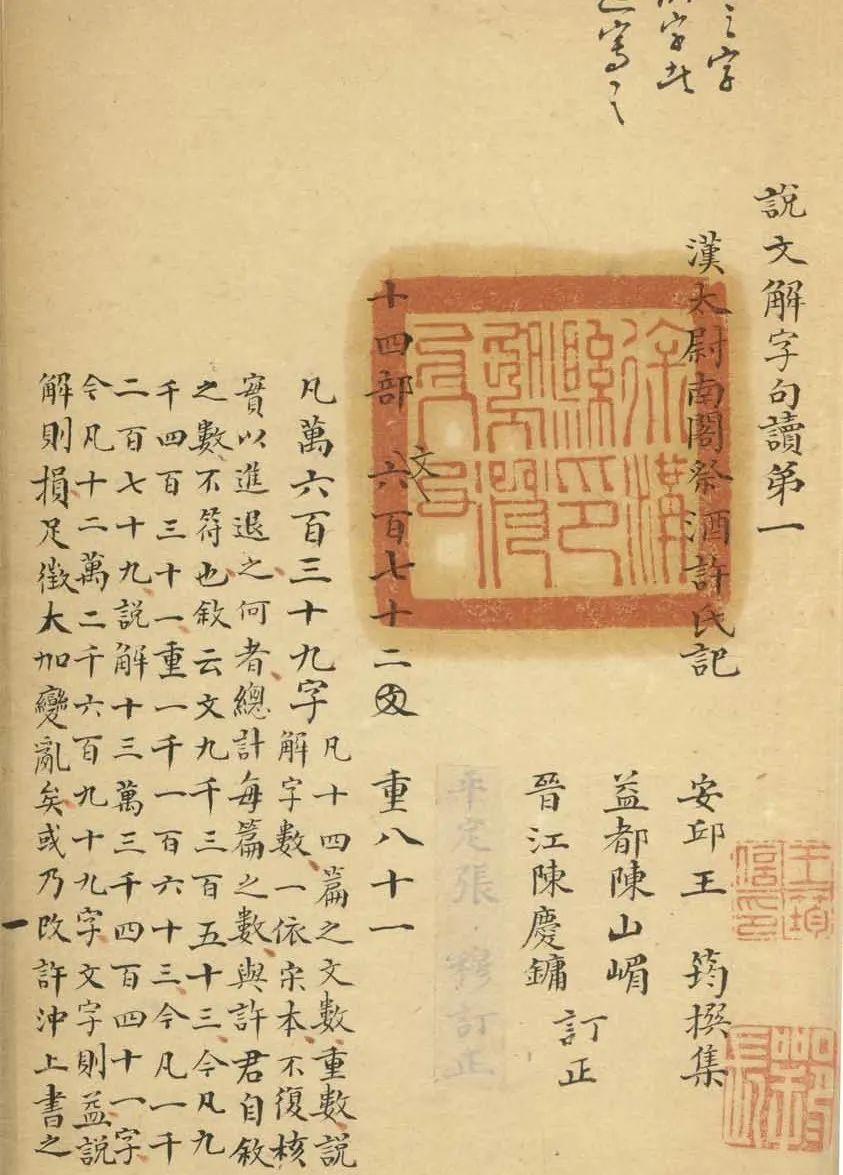 之字
字
寫之
說文解字句讀第一
漢太尉南閣祭酒許氏記
安邱王 筠撰集
益都陳山嵋
晉江陳慶鏞 訂正
平定張 穆訂正
文
十四部 六百七十二文 重八十一
凡萬六百三十九字 凡十四篇之文數重數說
解字數一依宋本不復核
實以進退之何者總計每篇之數與許君自敘
之數不符也敘云文九千三百五十三今凡九
千四百三十一重一千一百六十三今凡一千
二百七十九說解十三萬三千四百四十一字
今凡十二萬二千六百九十九字文字則益說
解則損足徵大加變亂矣或乃改許沖上書之